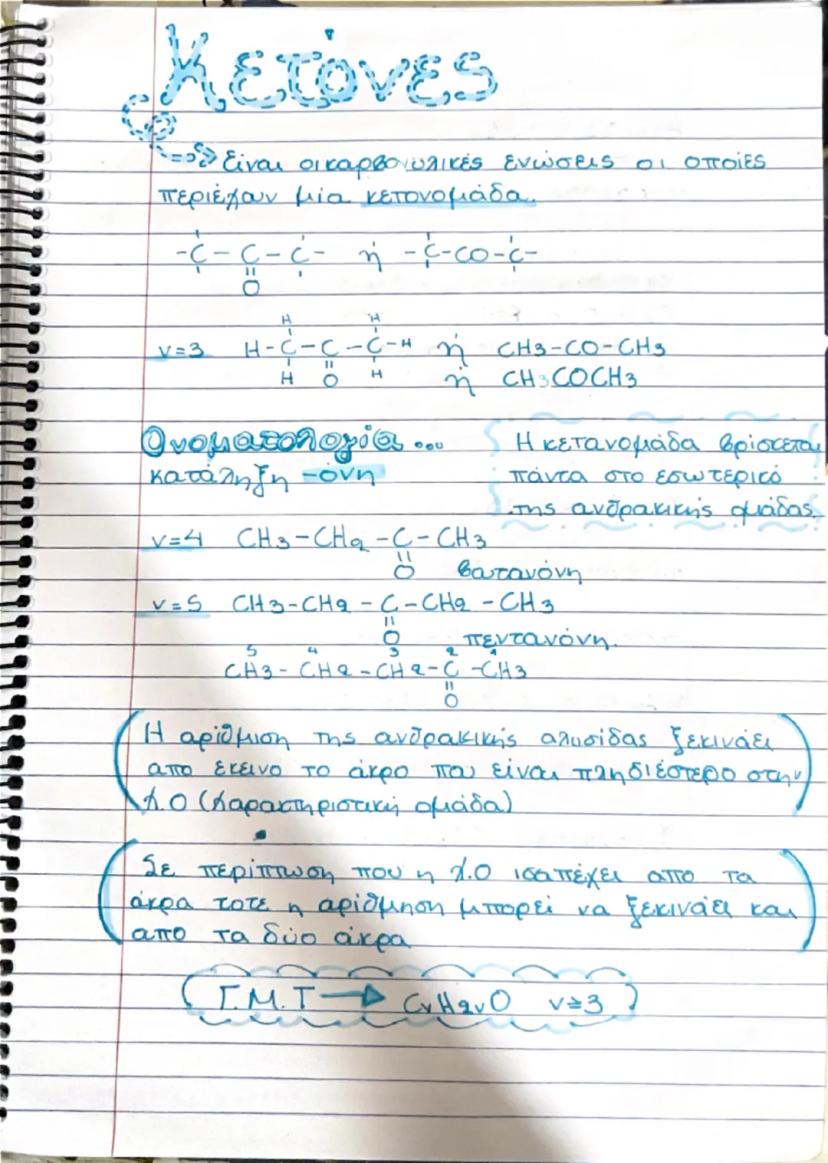 Κετόνες
Είναι οι καρβονυλικές ενώσεις οι οποίες
περιέχουν μία κετονομάδα.
-C- C - C- ή -C-CO-C-
O
H H
ν=3 H-C-C-C-H ή CH3-CO-CH3
H O H ή CH3COCH3
Ονοματολογία... Η κετονομάδα βρίσκεται
κατάληξη -όνη πάντα στο εσωτερικό
της ανθρακικής ομάδας
ν=4 CH3-CH2-C-CH3
O βουτανόνη
ν=5 CH3-CH2-C-CH2-CH3
O πεντανόνη.
5 4 3 2 1
CH3-CH2-CH2-C-CH3
O
Η αρίθμιση της ανθρακικής αλυσίδας ξεκινάει
απο έκεινο το άκρο που είναι πλησιέστερο στην
Χ.Ο (Χαρακτηριστική ομάδα)
Σε περίπτωση που η Χ.Ο ισαπέχει απο τα
άκρα τοτε η αρίθμηση μπορεί να ξεκινάει και
απο τα δύο άκρα
Γ.Μ.Τ → CνH2νO ν≥3